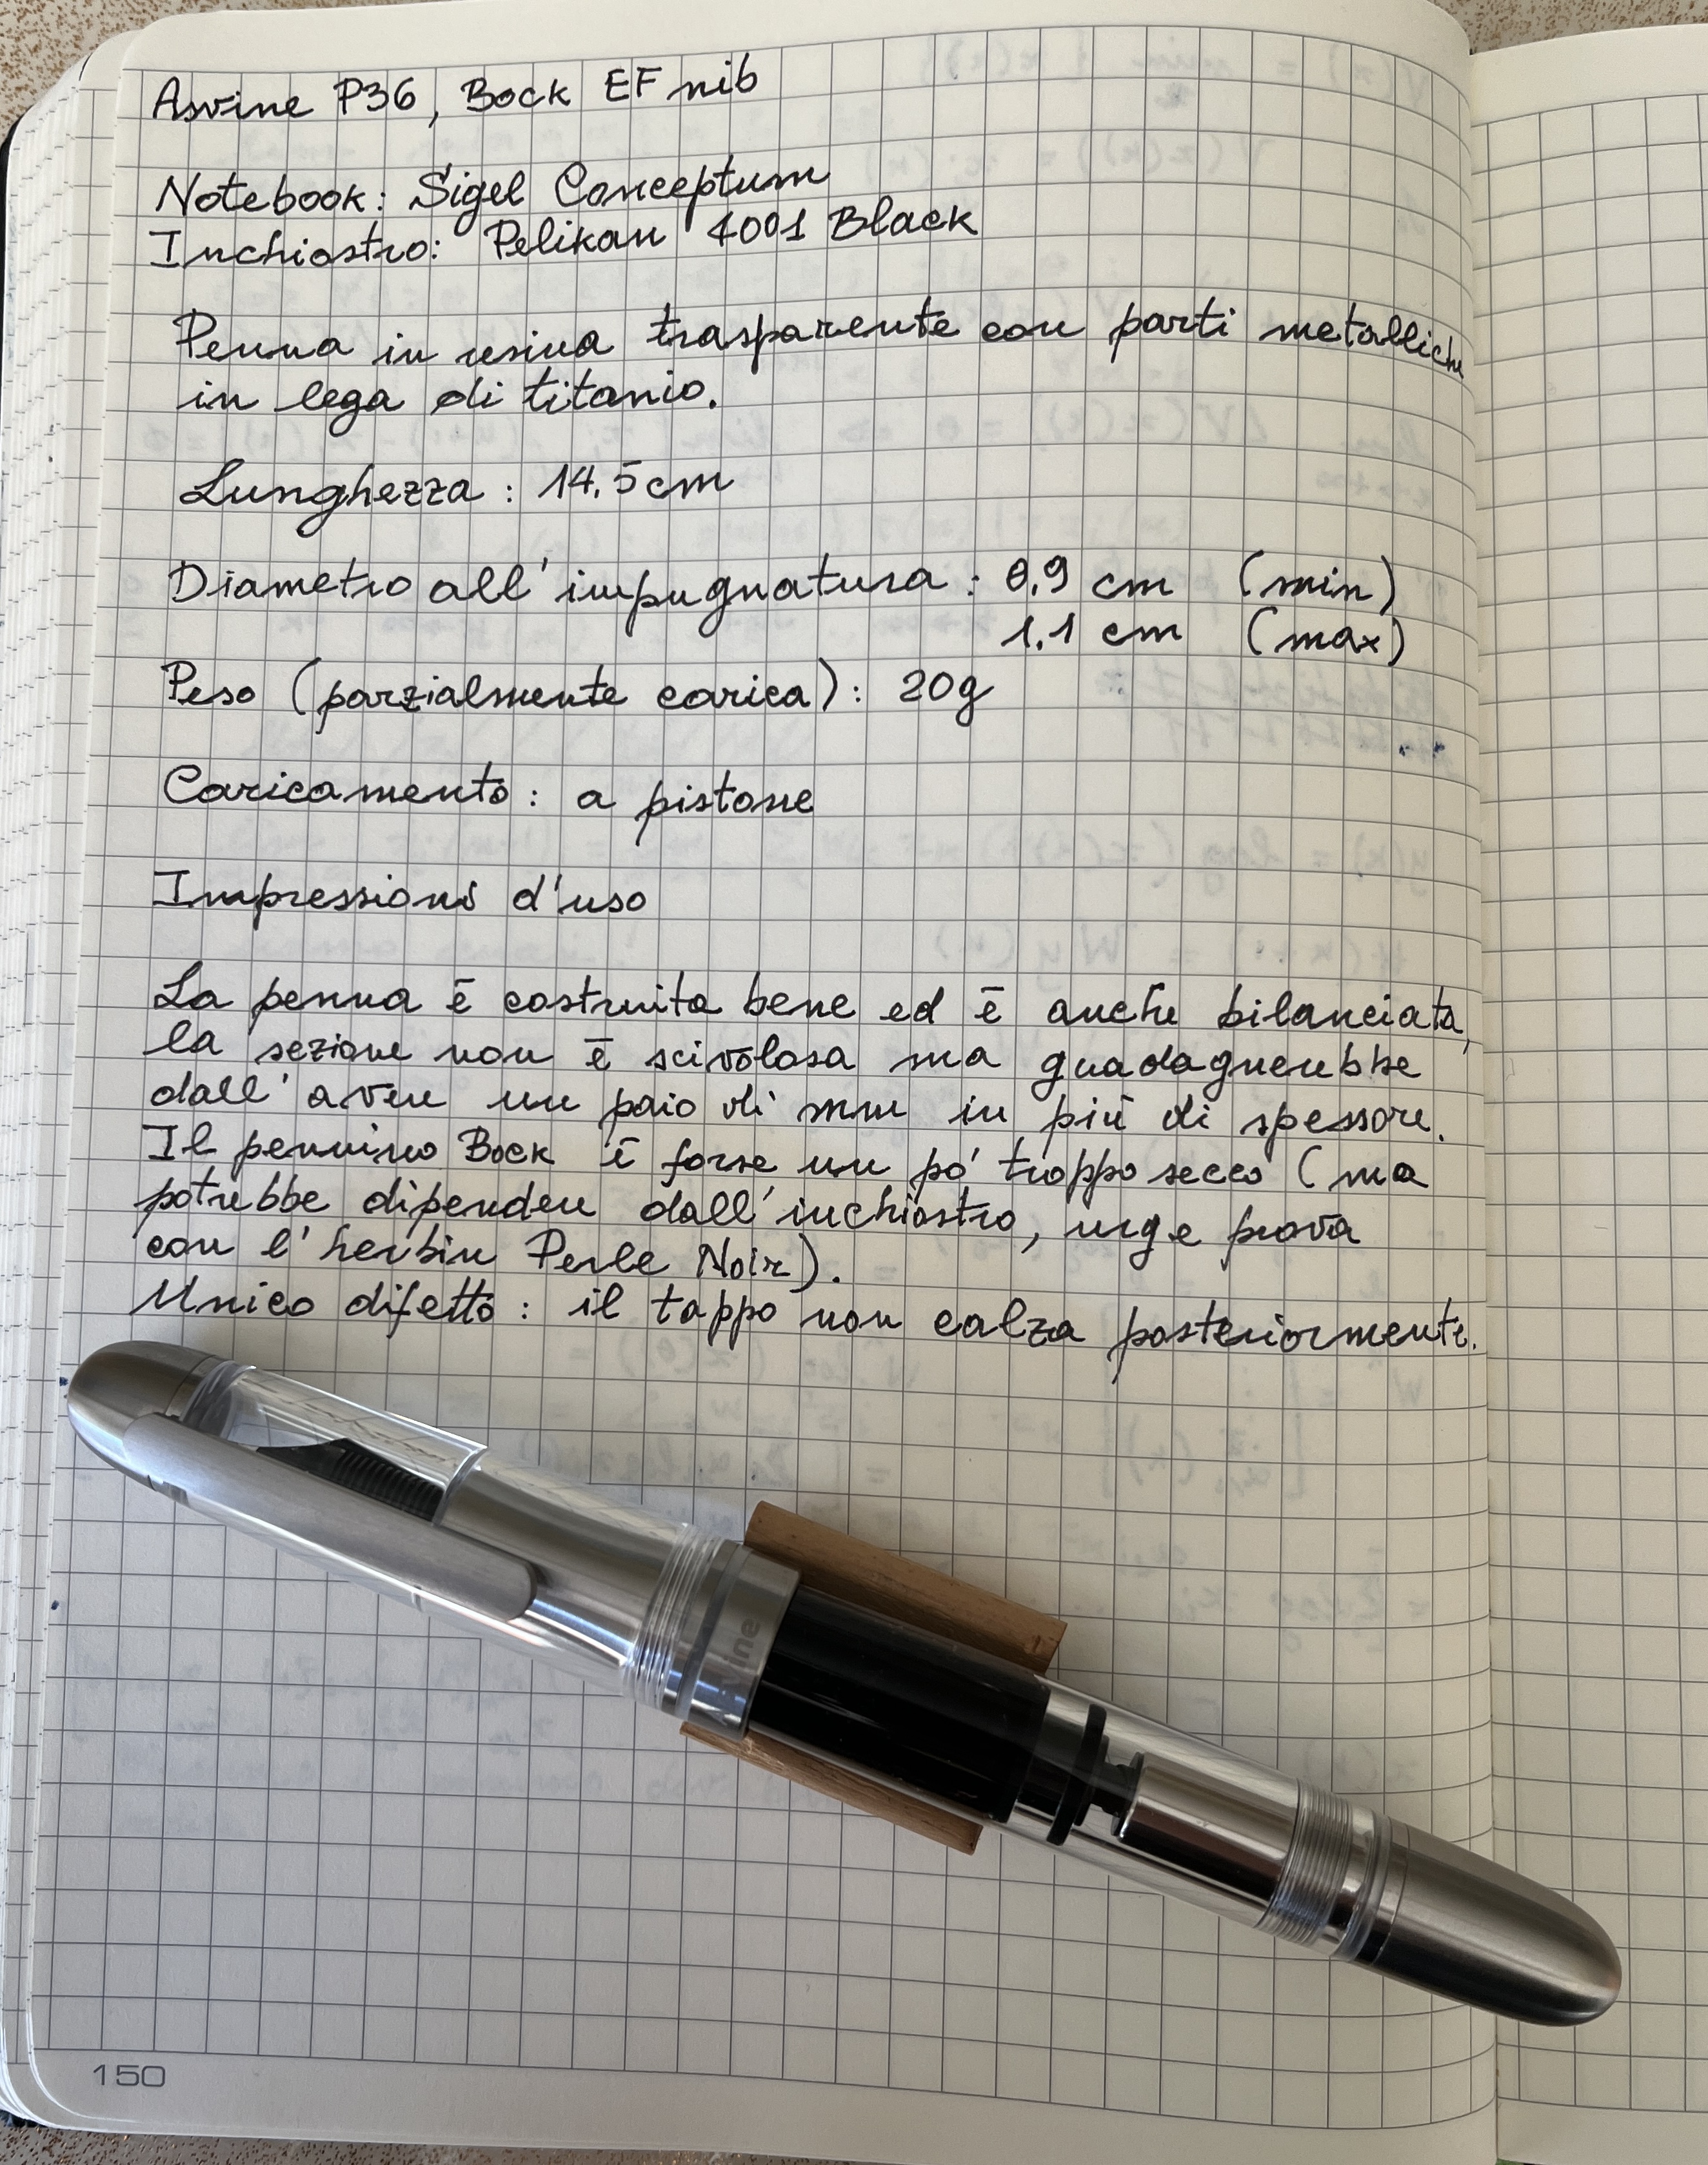 Asvine P36, Bock EF nib
Notebook: Sigel Conceptum
Inchiostro: Pelikan 4001 Black
Penna in resina trasparente con parti metalliche
in lega di titanio.
Lunghezza: 14,5cm
Diametro all'impugnatura: 0,9 cm (min)
1,1 cm (max)
Peso (parzialmente carica): 20g
Caricamento: a pistone
Impressioni d'uso
La penna è costruita bene ed è anche bilanciata,
la sezione non è scivolosa ma guadagnerebbe
dall'avere un paio di mm in più di spessore.
Il pennino Bock è forse un po' troppo secco (ma
potrebbe dipendere dall'inchiostro, urge prova
con l'herbin Perle Noir).
Unico difetto: il tappo non calza posteriormente.
ine
150